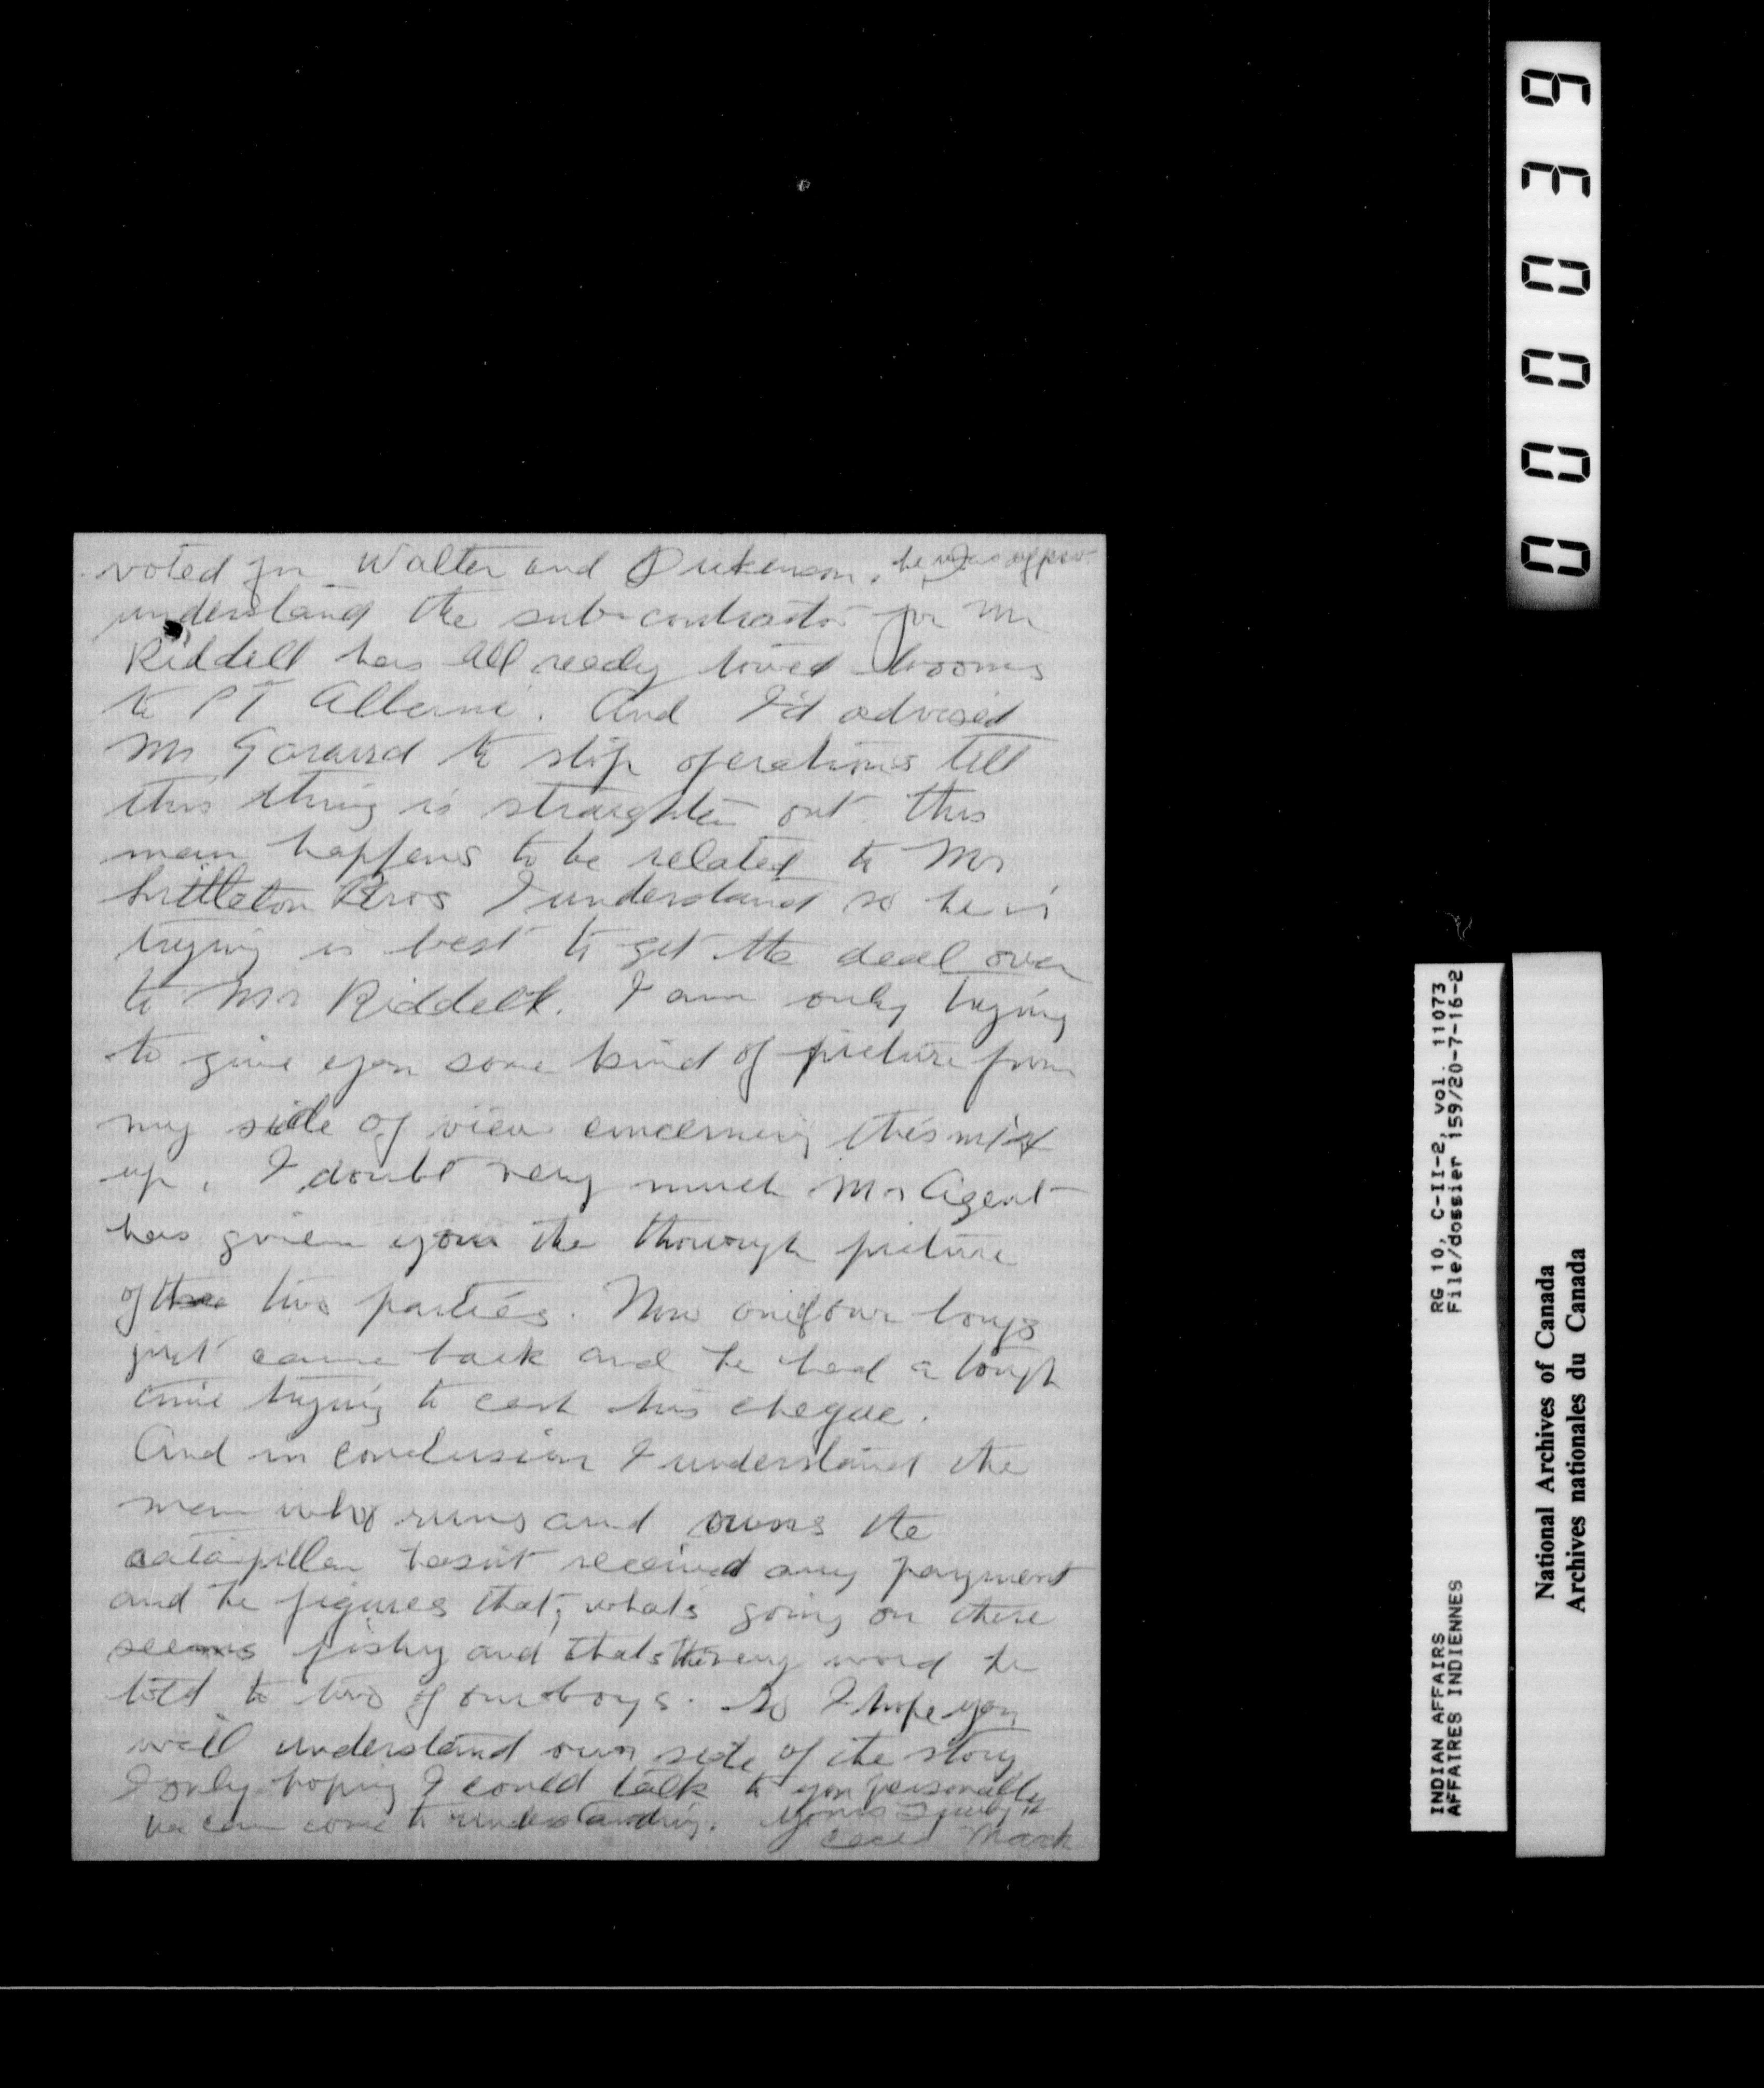 voted for Walter and Dickenson, he was
understand the sub-contractor for Mr
Riddell has all ready towed booms
to PT Alberni. And I'd advised
Mr Garaurd to stop operations till
this thing is straighten out. this
man happens to be related to Mr
Littleton Bros I understand so he is
trying is best to get the deal over
to Mr Riddell. I am only trying
to give you some kind of picture from
my side of view concerning this mix
up. I doubt very much Mr Agent
has given you the thorough picture
of the two parties. Now one of our boys
just came back and he had a tough
time trying to cash his cheque.
And in conclusion I understand the
man who runs and owns the
catapillar hasn't received any payment
and he figures that, whats going on there
seems fishy and thats the very word he
told to two of our boys. So I hope you
will understand our side of the story
I only hoping I could talk to you personally
we can come to understanding. Yours Truly
Cecil Mack
000039
RG 10, C-II-2, vol. 11073
File/dossier 159/20-7-16-2
INDIAN AFFAIRS
AFFAIRES INDIENNES
National Archives of Canada
Archives nationales du Canada